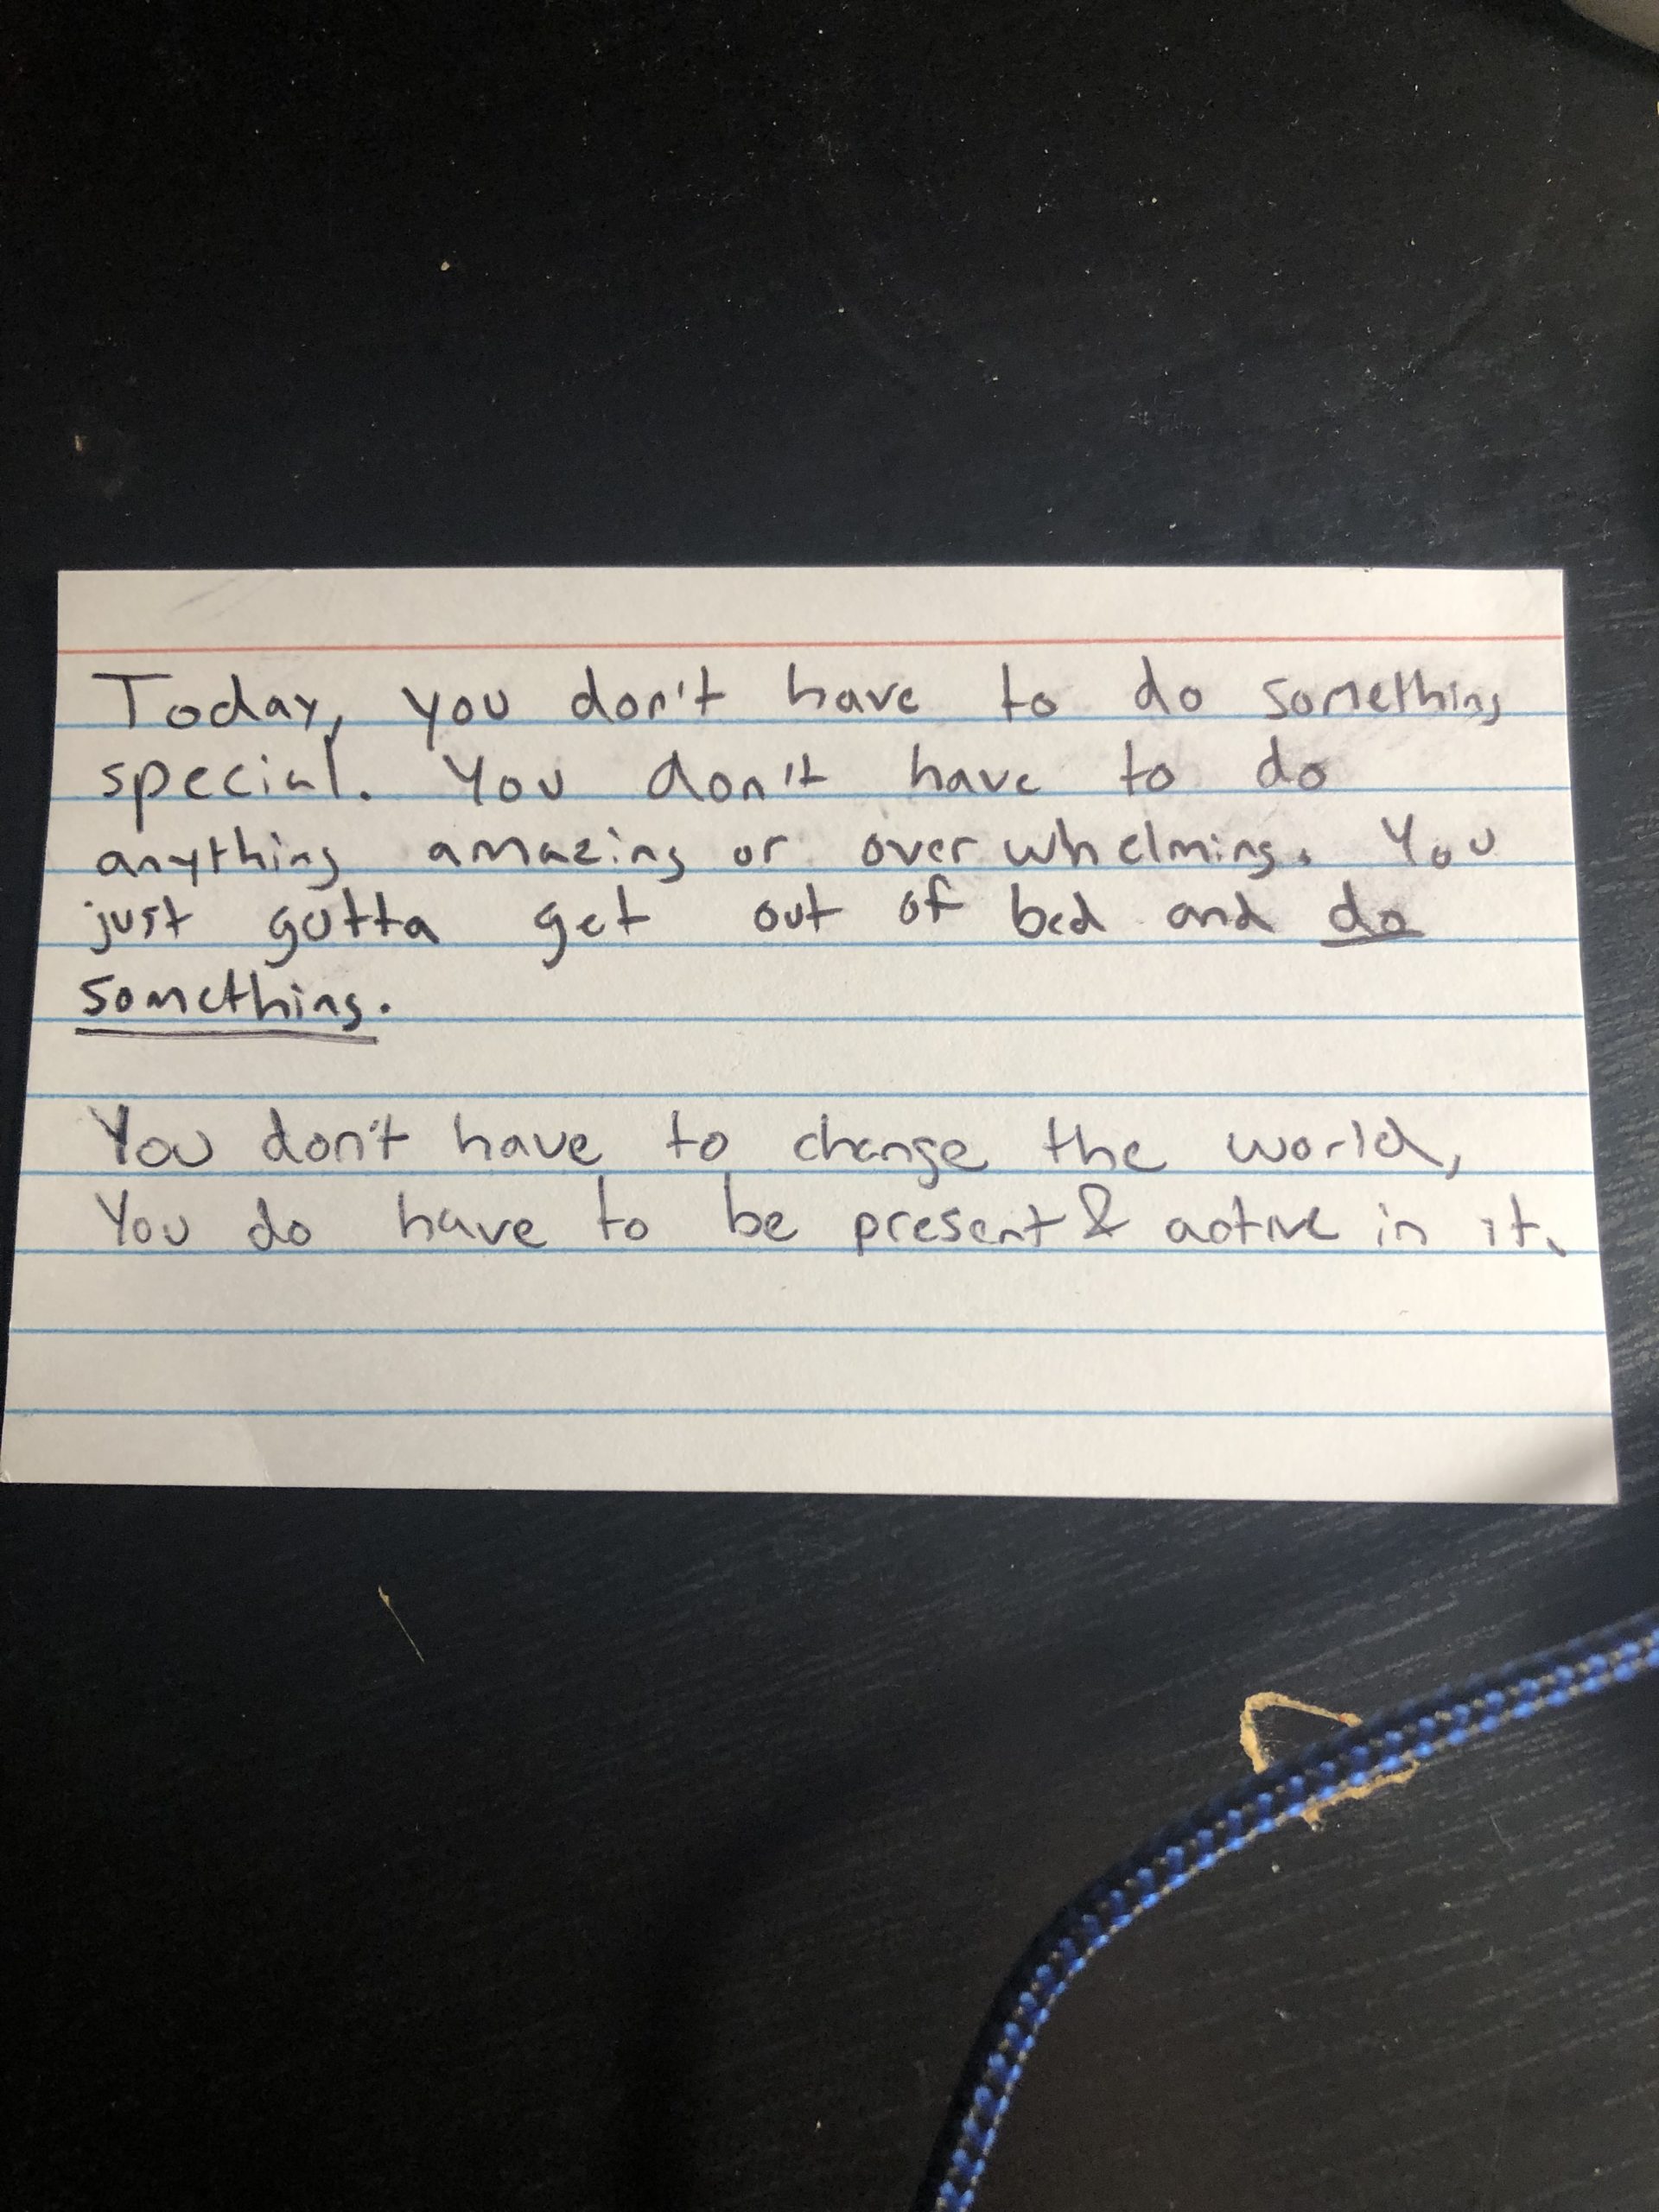 Today, you don't have to do something
special. You don't have to do
anything amazing or overwhelming. You
just gotta get out of bed and do
something.
You don't have to change the world,
You do have to be present & active in it.